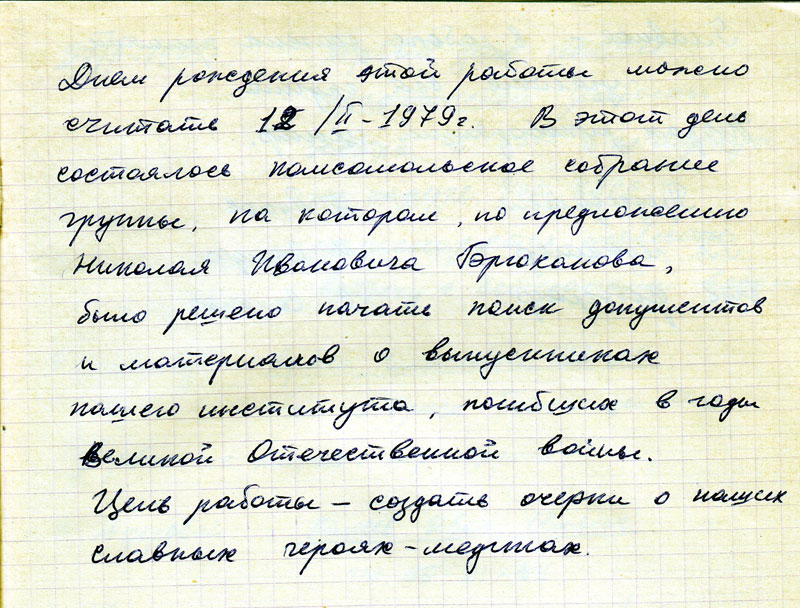 Днем рождения этой работы можно
считать 12/II-1979г. В этот день
состоялось комсомольское собрание
группы, на котором, по предложению
Николая Ивановича
было решено начать поиск документов
и материалов о выпускниках
нашего института, погибших в годы
Великой Отечественной войны.
Цель работы – создать очерки о наших
славных героях-медиках.